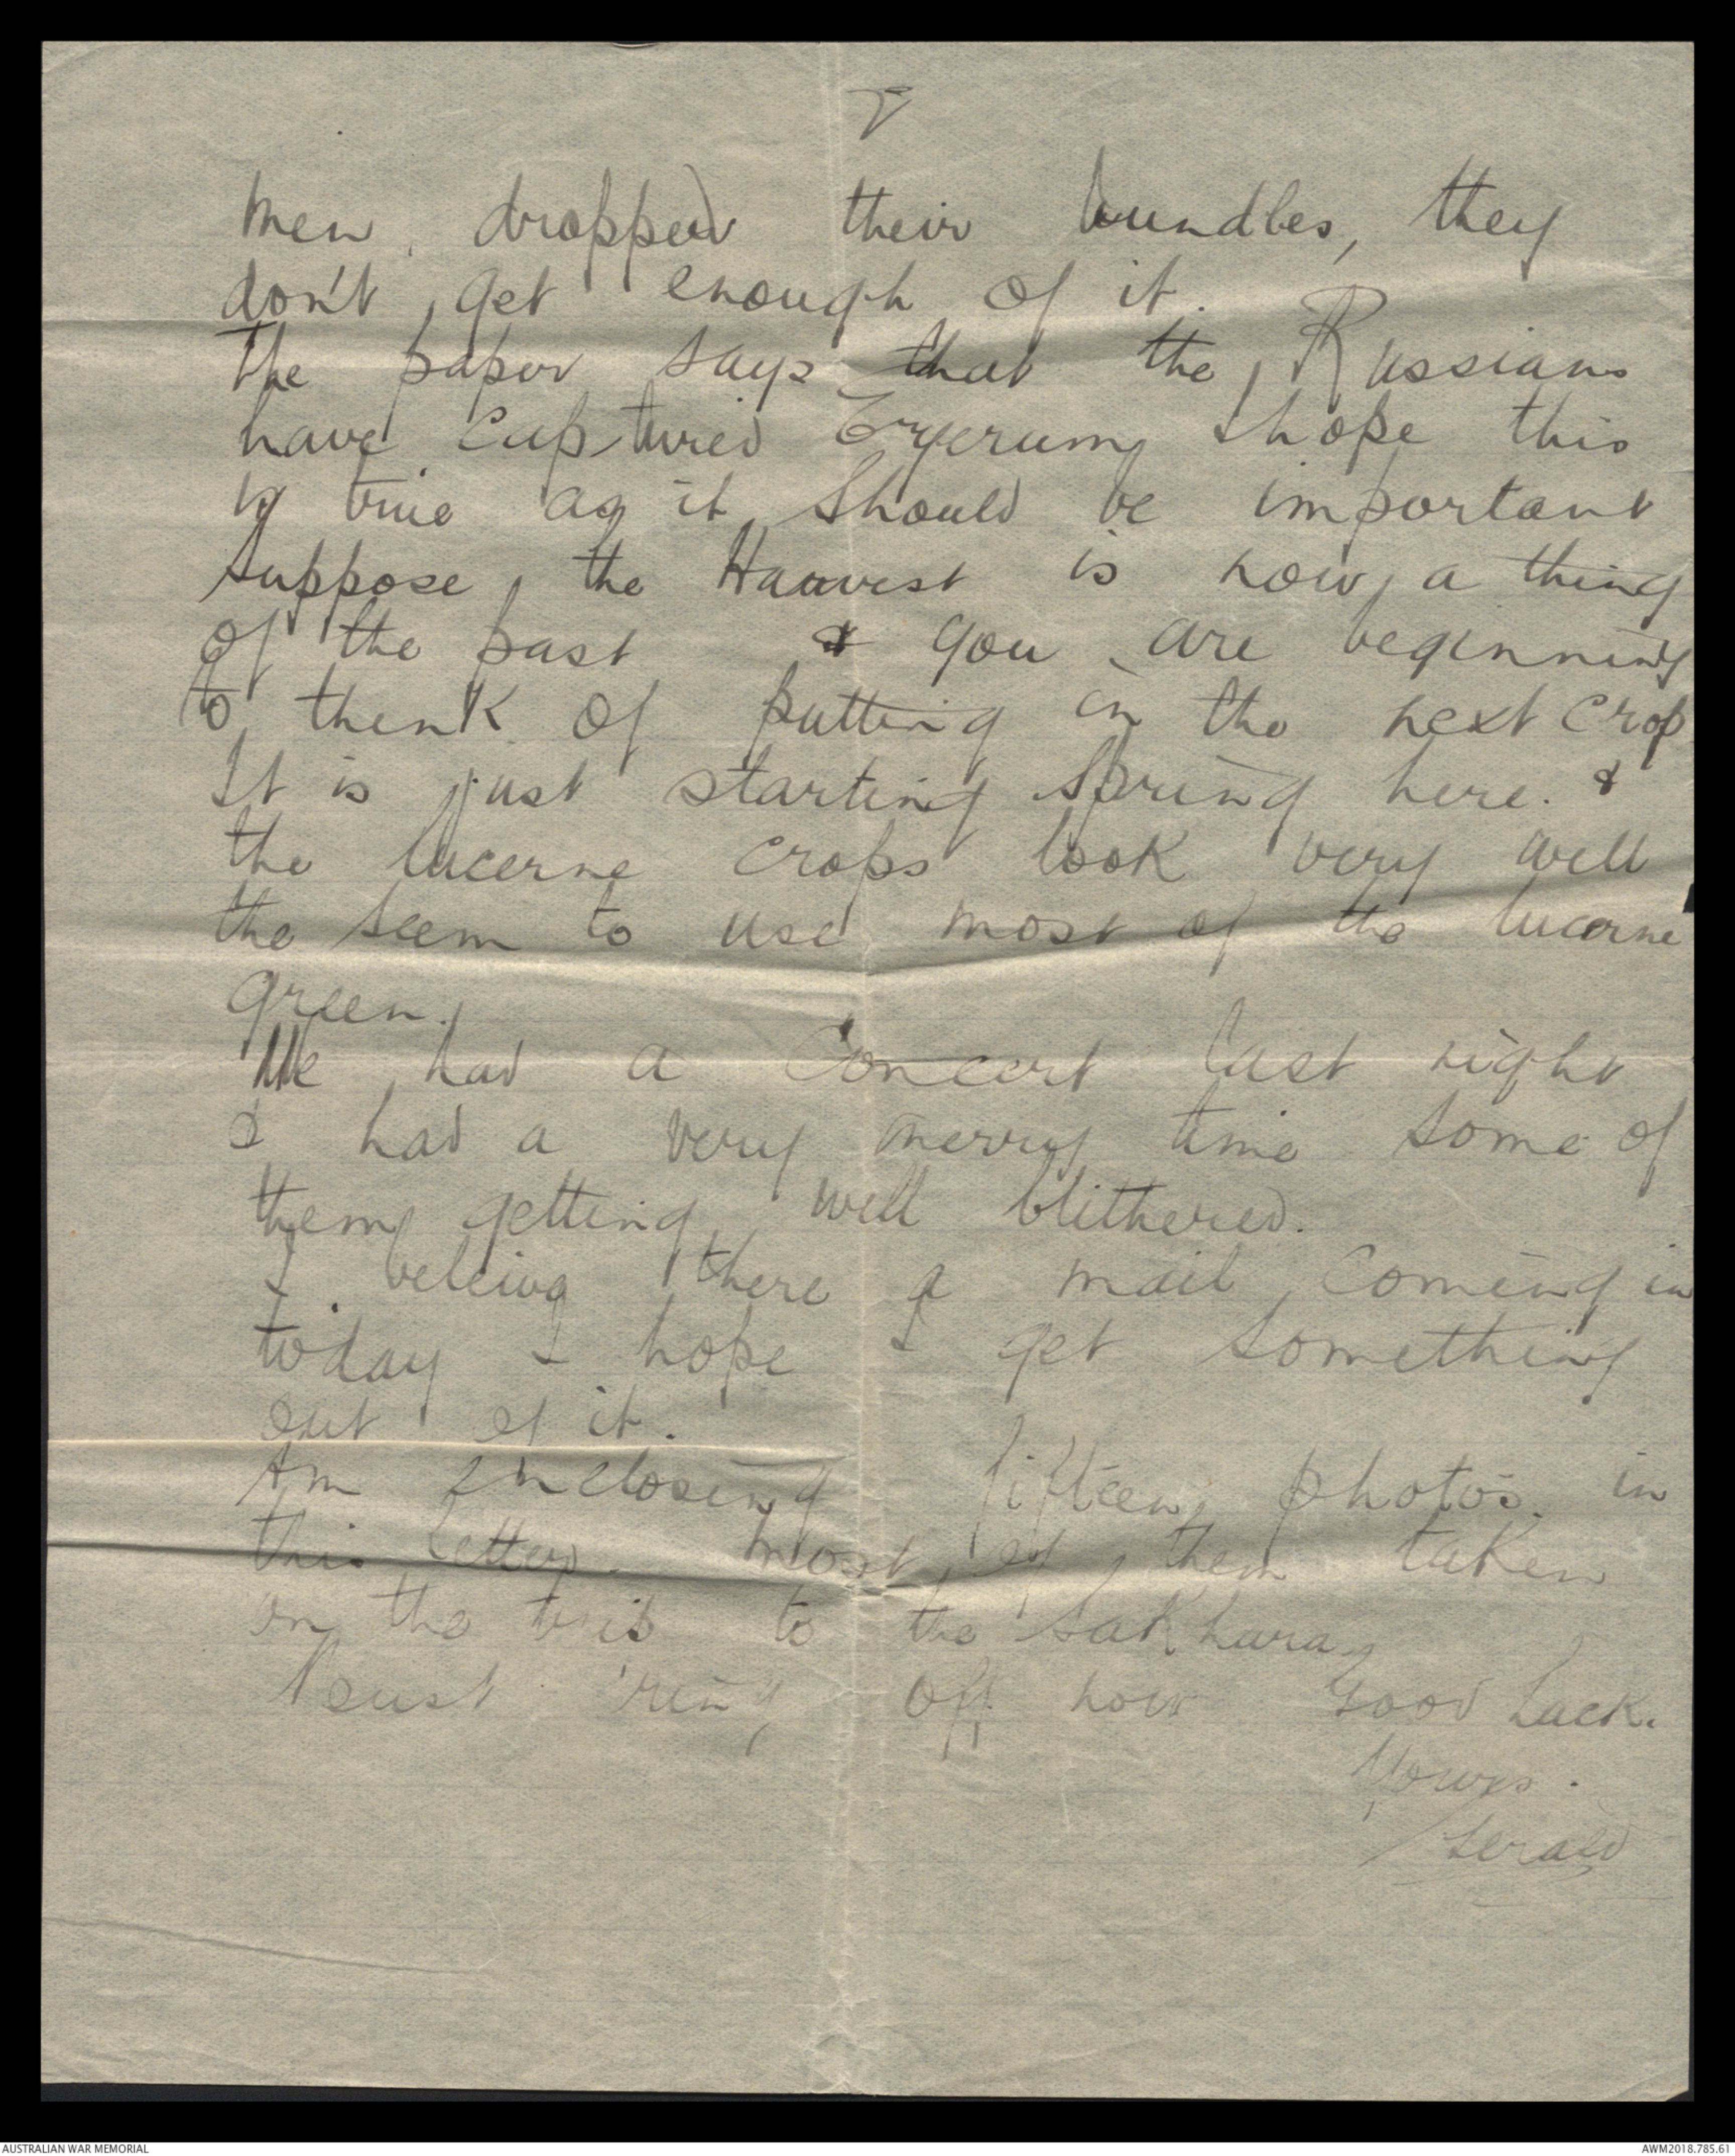 7
men dropped their bundles, they
don't get enough of it.
The paper says that the Russians
have captured Eryerum, I hope this
is true as it should be important
Suppose the Harvest is now a thing
of the past & you are beginning
to think of putting in the next crop
It is just starting Spring here. &
the lucerne crops look very well
the seem to use most of the lucerne
green.
We had a Concert last night
& had a very merry time some of
them getting well blithered.
I beleive there a mail coming in
today I hope I get something
out of it.
Am enclosing fifteen photos. in
this letter. most of them taken
on the trip to the Sakhara,
Must ring off now Good Luck.
Yours.
Gerald
AUSTRALIAN WAR MEMORIAL
AWM2018.785.61